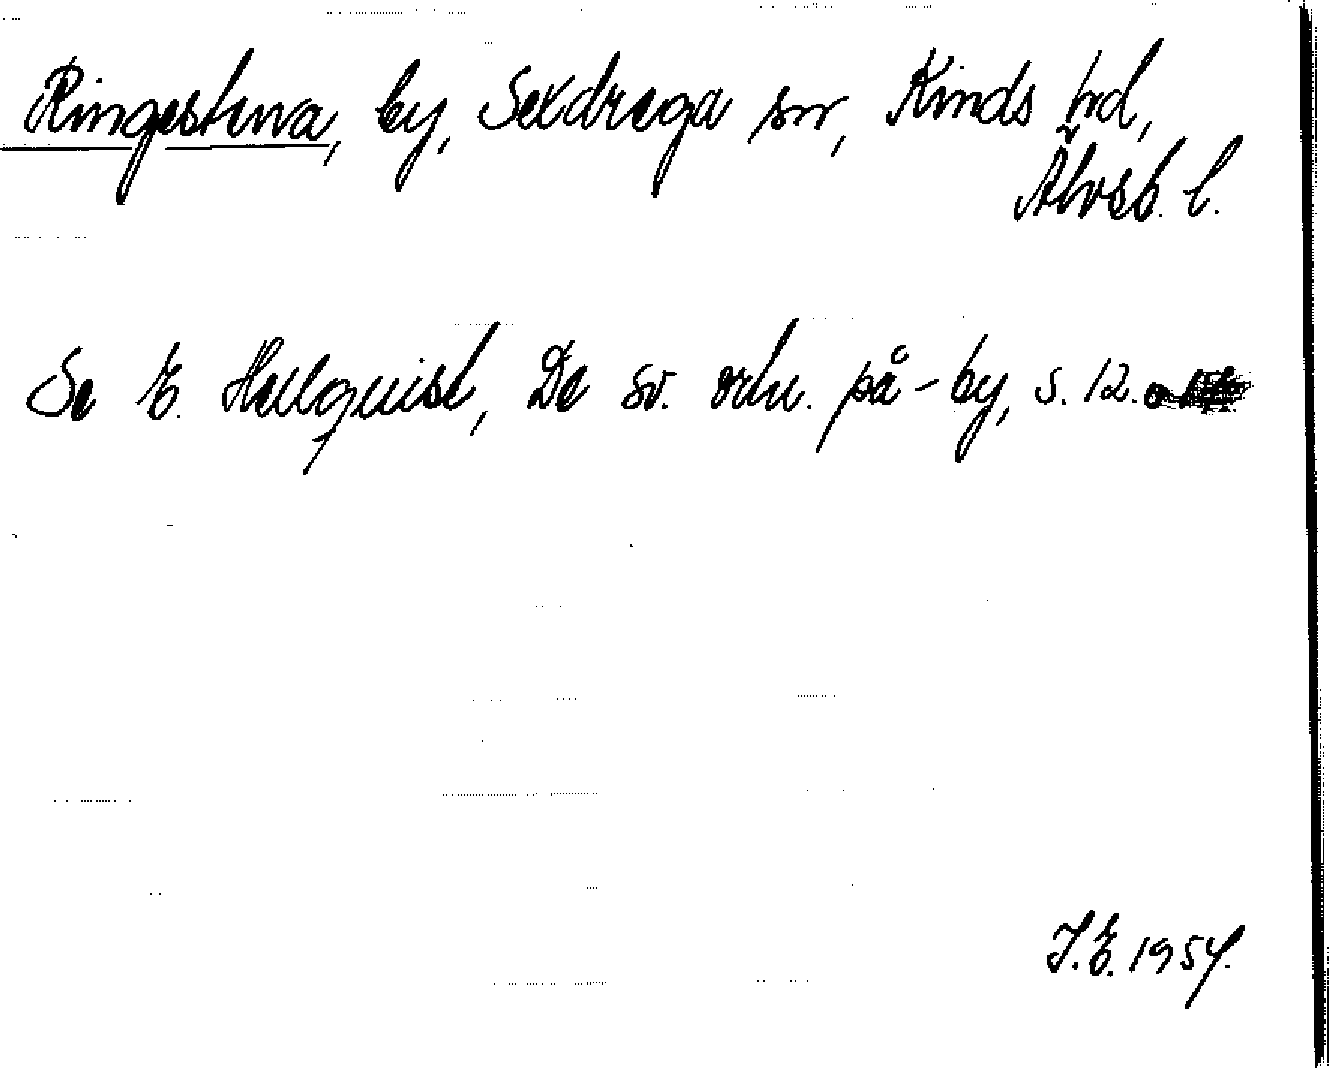 Ringestena, by, Sexdrega sn, Kinds hd,
Älvsb. l.
Se E. Hellquist, De sv. ortn. på -by, s. 12.
J.E. 1954.